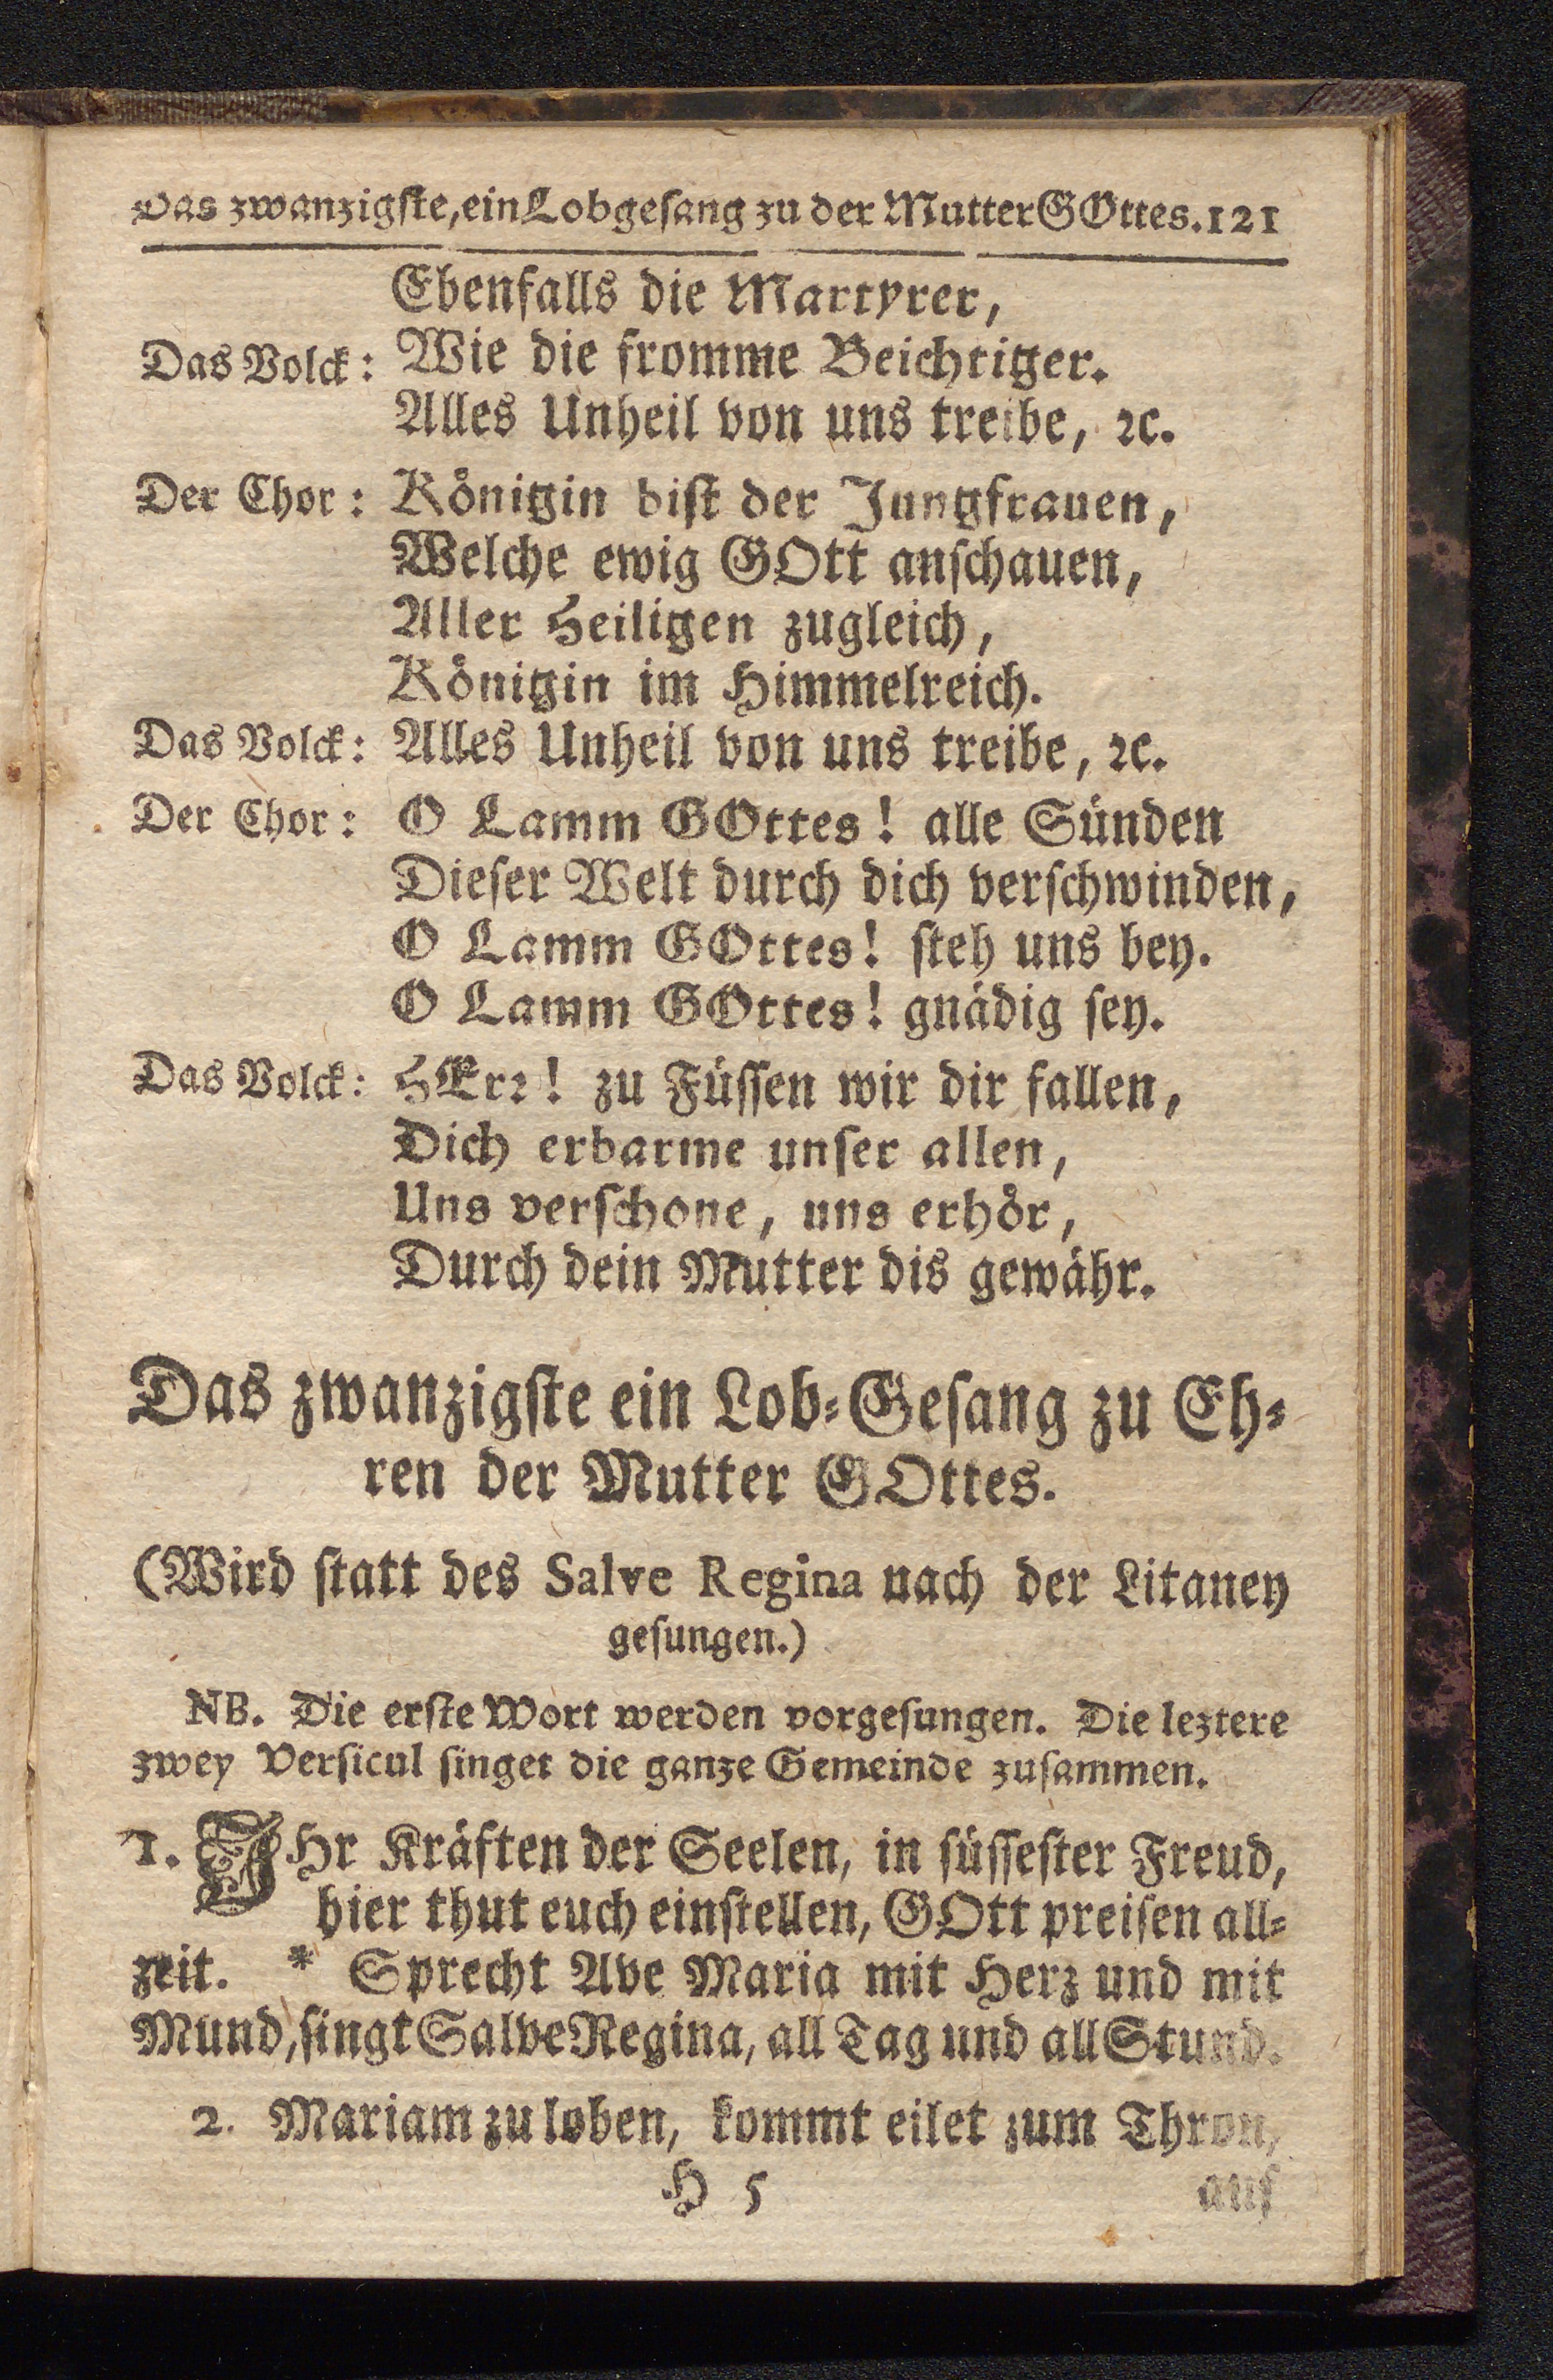 Das zwanzigste, ein Lobgesang zu der Mutter GOttes. 121
Ebenfalls die Martyrer,
Das Volck: Wie die fromme Beichtiger.
Alles Unheil von uns treibe, ꝛc.
Der Chor: Königin bist der Jungfrauen,
Welche ewig GOtt anschauen,
Aller Heiligen zugleich,
Königin im Himmelreich.
Das Volck: Alles Unheil von uns treibe, ꝛc.
Der Chor: O Lamm GOttes! alle Sünden
Dieser Welt durch dich verschwinden,
O Lamm GOttes! steh uns bey.
O Lamm GOttes! gnädig sey.
Das Volck: HErr! zu Füssen wir dir fallen,
Dich erbarme unser allen,
Uns verschone, uns erhör,
Durch dein Mutter dis gewähr.
Das zwanzigste ein Lob-Gesang zu Eh-
ren der Mutter GOttes.
(Wird statt des Salve Regina nach der Litaney
gesungen.)
NB. Die erste Wort werden vorgesungen. Die leztere
zwey Versicul singet die ganze Gemeinde zusammen.
1. IHr Kräften der Seelen, in süssester Freud,
hier thut euch einstellen, GOtt preisen all-
zeit. * Sprecht Ave Maria mit Herz und mit
Mund, singt Salve Regina, all Tag und all Stund.
2. Mariam zu loben, kommt eilet zum Thron,
H 5 auf